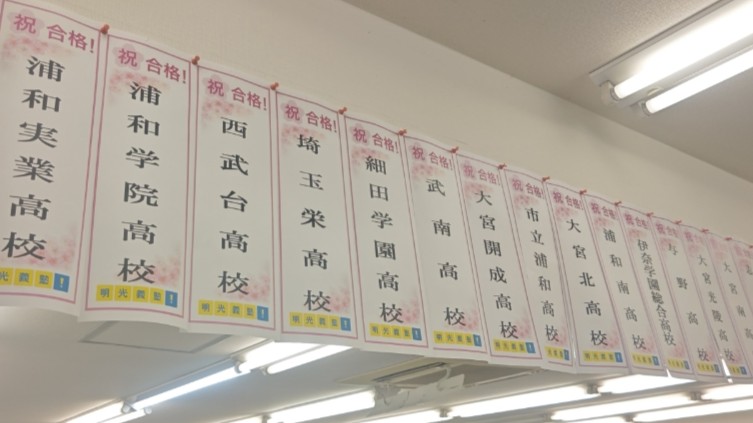 祝 合格!
浦和実業高校
明光義塾!
祝 合格!
浦和学院高校
明光義塾!
祝 合格!
西武台高校
明光義塾!
祝 合格!
埼玉栄高校
明光義塾!
祝 合格!
細田学園高校
明光義塾!
祝 合格!
武南高校
明光義塾!
祝 合格!
大宮開成高校
明光義塾!
祝 合格!
市立浦和高校
明光義塾!
祝 合格!
大宮北高校
明光義塾!
祝 合格!
浦和南高校
明光義塾!
祝 合格!
伊奈学園総合高校
明光義塾!
祝 合格!
与野高校
明光義塾!
大宮光陵高校
大宮南高